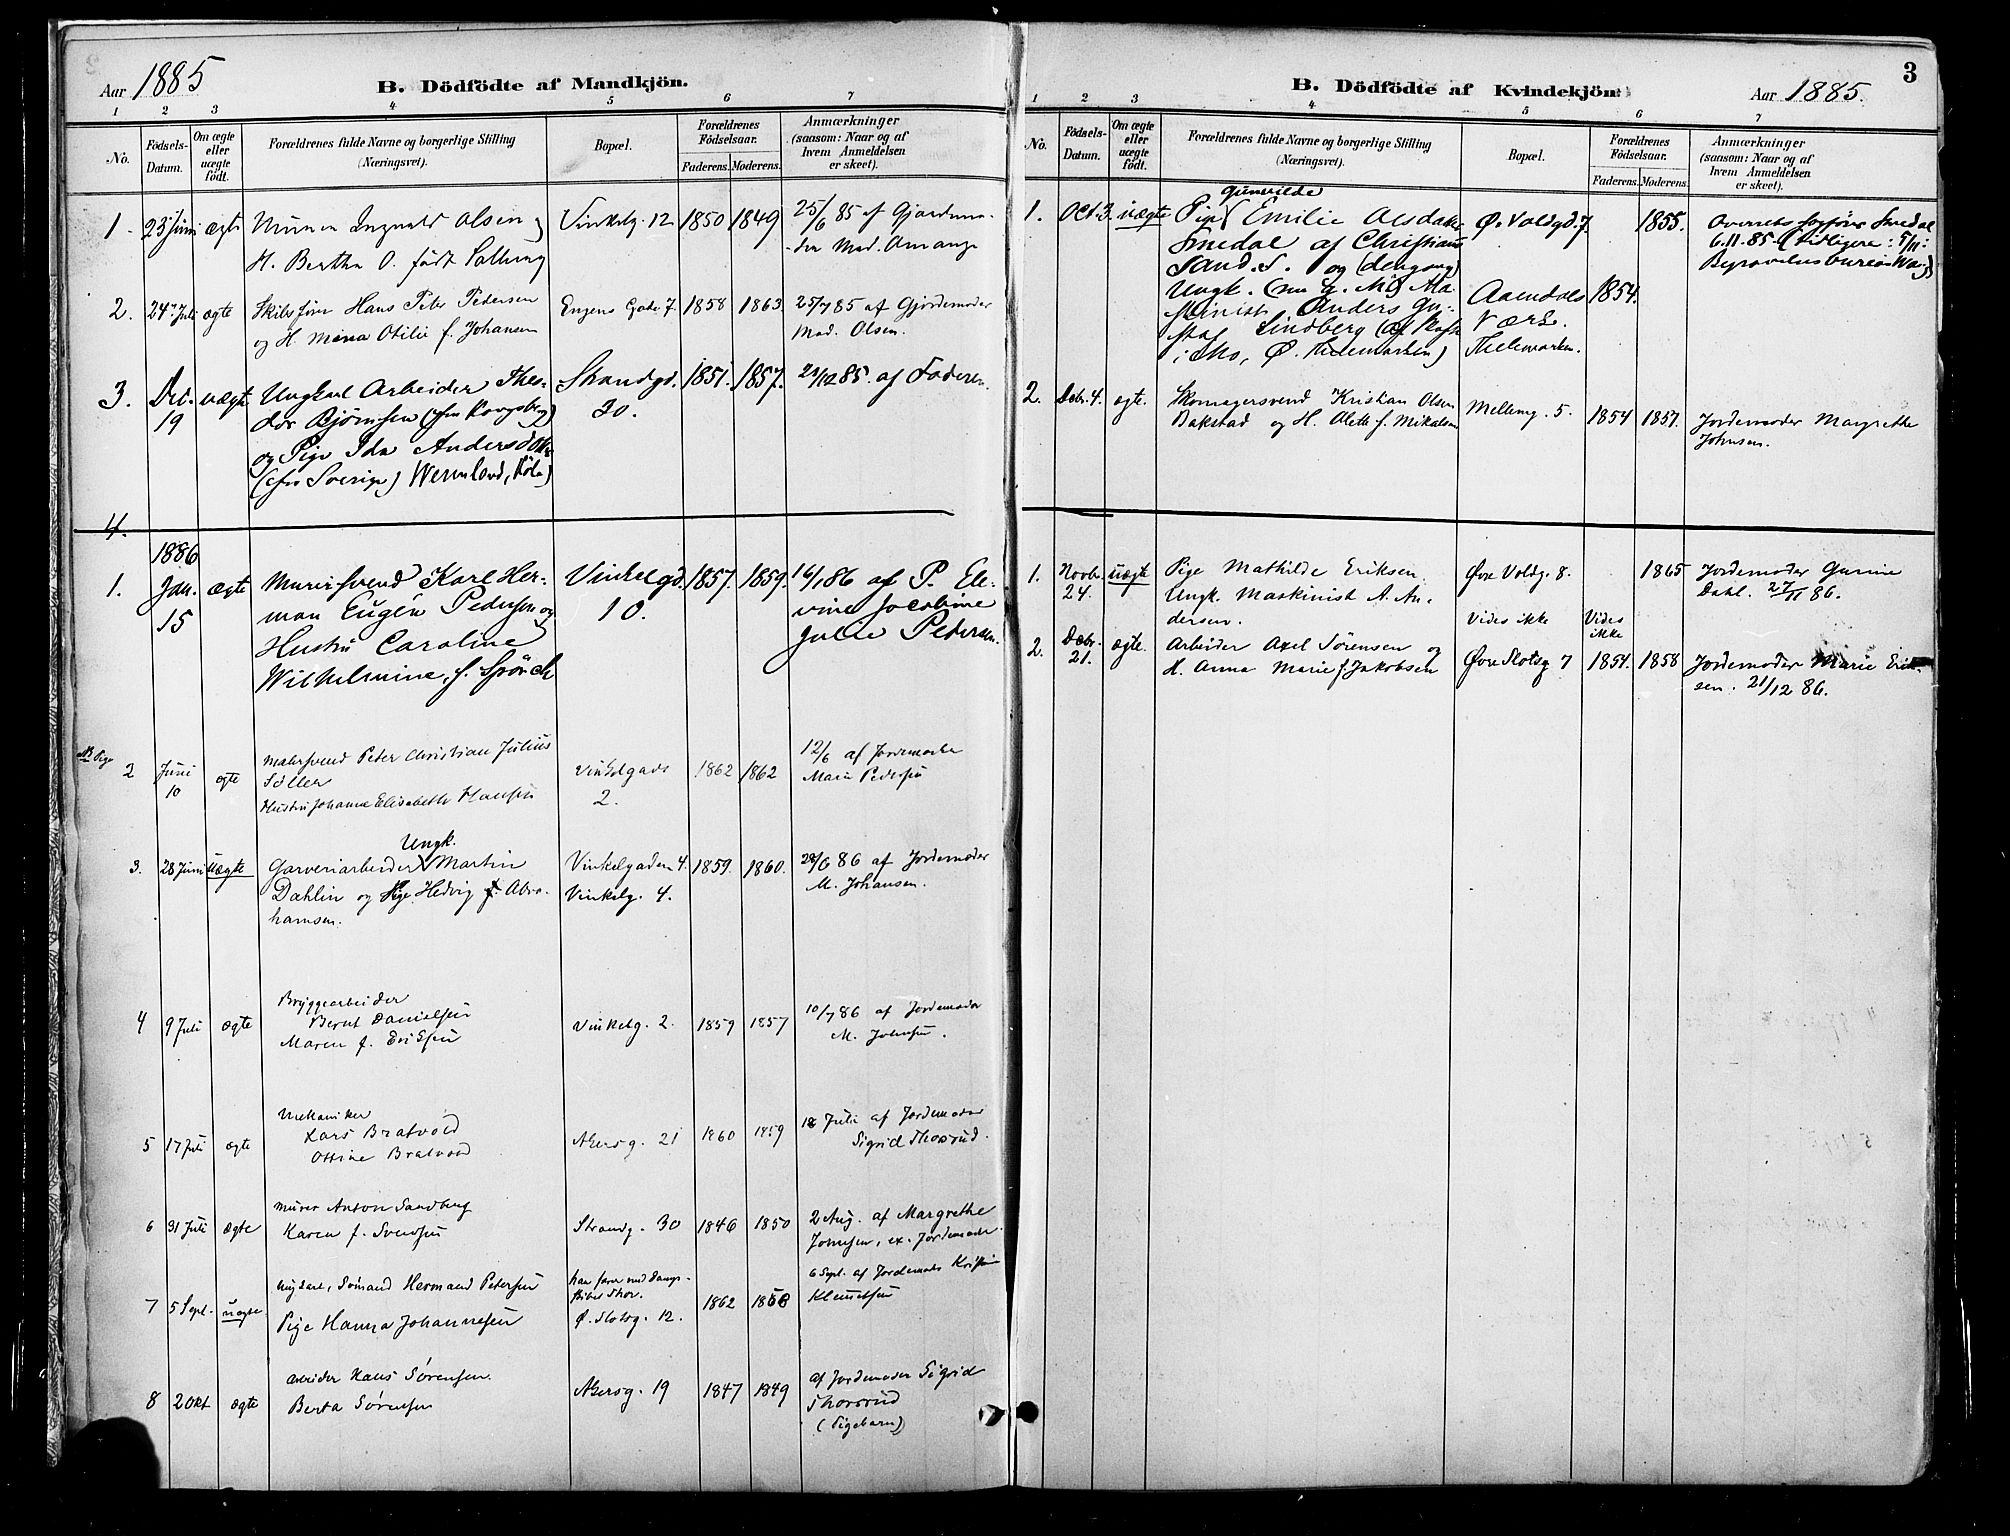 Aar 1885
B. Dödfödte af Mandkjön.
1 2 3 4 5 6 7
No.
Födsels-Datum.
Om ægte eller uægte födt.
Forældrenes fulde Navne og borgerlige Stilling
(Næringsvet).
Bopæl.
Forældrenes Födselsaar.
Faderens. Moderens.
Anmærkninger
(saasom: Naar og af
hvem Anmeldelsen
er skeet).
1 23 Juni ægte Murer Ingvald Olsen Vinkelg. 12 1850 1849 25/6 85 af Gjordemo-
H. Bertha O. født
der Mad.
2. 24 Juli ægte Skibsfører Hans Peter Pedersen Engens Gade 7. 1858 1863 25/7 85 af Gjordemoder
og H. Mina Otilie f. Johansen
Mad. Olsen.
3. Dec. uægte Ungkarl Arbeider Theo- Strandgd. 1851. 1857. 22/12 85. af Faderen.
19 dor Bjørnsen (fra Kongsberg) 30.
og Pige Ida Andersdotter
(fra Sverige) Wermland,
4.
1886
1. Jan. ægte Murersvend Karl Her- Vinkelgd. 1857. 1859. 16/1 86 af P. Ele-
15 man Eugén Pedersen og 10. vine Jacobine
Hustru Caroline Julie Petersen.
Wilhelmine, f. Spörck
NB Pige
2 Juni ægte Malersvend Peter Christian Julius Vinkelgade 1862 1862 12/6 af Jordemoder
10 Söller 2. Marie Pedersen
Hustru Johanne Elisabeth Hansen
Ungk.
3. 28 Juni uægte Garveriarbeider Martin Vinkelgaden 4. 1859. 1860. 28/6 86 af Jordemoder
Dahlin og Pige Hedvig Abra- Vinkelg. 4. M. Johansen.
hamsen.
Bryggearbeider
4 9 Juli ægte Bernt Danielsen Vinkelg. 2. 1859 1857 10/7 86 af Jordemoder
Maren f. Eriksen M. Johnsen.
Mekaniker
5 17 Juli ægte Lars Bratvold Akersg. 21 1860 1859 18 Juli af Jordemoder
Ottine Bratvold Sigrid Thorsrud.
Murer Anton Sandberg
6 31 Juli ægte Karen f. Svendsen Strandg. 30 1846 1850 2 Aug. af Margrethe
Johnsen, ex. Jordemoder.
Ungkarl, Sømand Hermand Petersen han farer med Damp-
skibet Thor. 6 Sept. af Jordemoder Kristine
7 5 Sept. uægte Pige Hanna Johannesen Ø. Slotsg. 12. 1862 1858 Klemetsen
Arbeider Hans Sørensen.
8 2 Okt ægte Berta Sørensen Akersg. 19 1847 1849 af Jordemoder Sigrid
Thorsrud
(Pigebarn)
3
B. Dödfödte af Kvindekjön.
Aar 1885.
1 2 3 4 5 6 7
No.
Födsels-Datum.
Om ægte eller uægte födt.
Forældrenes fulde Navne og borgerlige Stilling
(Næringsvet).
Bopæl.
Forældrenes Födselsaar.
Faderens. Moderens.
Anmærkninger
(saasom: Naar og af
hvem Anmeldelsen
er skeet).
Gunvilde
1. Oct. 3. uægte Pige Emilie Ø. Voldgd. 7. 1855. Overretssagfører Smedal
Smedal af Christian- 6.11.85. (tidligere: 5/11:
sand. S. og (dengang)
Ungk. (nu g. M.) Ma- Aamdals 1854.
skinist Anders Gu- Værk.
staf Lindberg Thelemarken.
i Mo, Ø. Thelemarken)
2. Decbr. 4. ægte. Skomagersvend Kristian Olsen Mellemg. 5. 1854 1857. Jordemoder Margrethe
Bakstad og H. Alette f. Mikalsen Johnsen.
1. Novbr. uægte Pige Mathilde Eriksen. Øvre Voldg. 8. 1865 Jordemoder Gunine
24. Ungk. Maskinist A. An- Dahl. 27/11 86.
dersen. Vides ikke Vides ikke
2. Decbr. ægte. Arbeider Axel Sørensen og
21. H. Anna Marie f. Jakobsen Øvre Slotsg 7 1854. 1858 Jordemoder Marie Erik-
sen. 21/12 86.